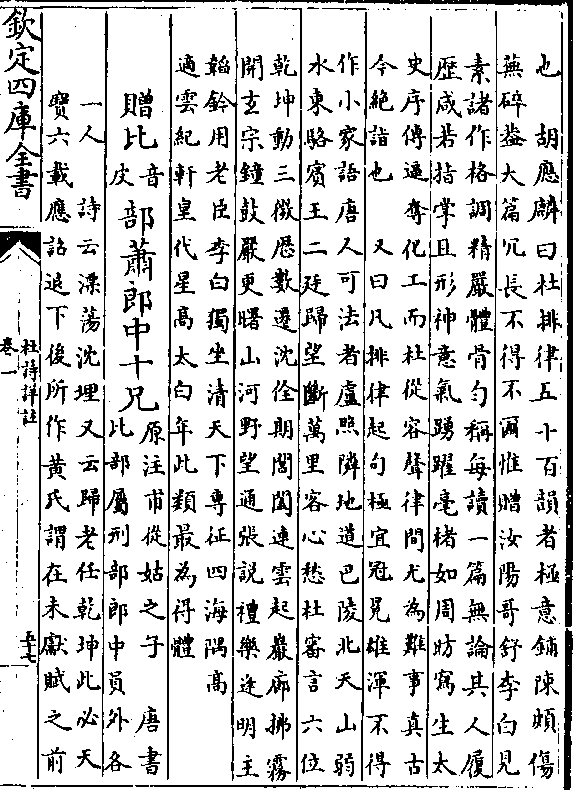 也　胡應麟曰杜排律五十百韻者極意鋪陳頗傷
蕪碎葢大篇冗長不得不爾惟贈汝陽哥舒李白見
素諸作格調精嚴體骨勻稱每讀一篇無論其人履
歴咸若指掌且形神意氣踴躍毫楮如周昉寫生太
史序傳逼奪化工而杜從容聲律間尤為難事真古
今絶詣也　又曰凡排律起句極宜冠冕雄渾不得
作小家語唐人可法者盧照隣地道巴陵北天山弱
水東駱賓王二廷歸望斷萬里客心愁杜審言六位
乾坤動三微歴數遷沈佺期閶闔連雲起巖廊拂霧
開玄宗鐘鼓嚴更曙山河野望通張説禮樂逢明主
韜鈐用老臣李白獨坐清天下專征四海隅高
適雲紀軒皇代星高太白年此類最為得體
贈比音皮部蕭郎中十兄
原注甫從姑之子　唐書
比部屬刑部郎中員外各
一人　詩云漂蕩沈埋又云歸老任乾坤此必天
寶六載應詔退下後所作黄氏謂在未獻賦之前
欽定四庫全書
杜詩詳註
卷一
五十七